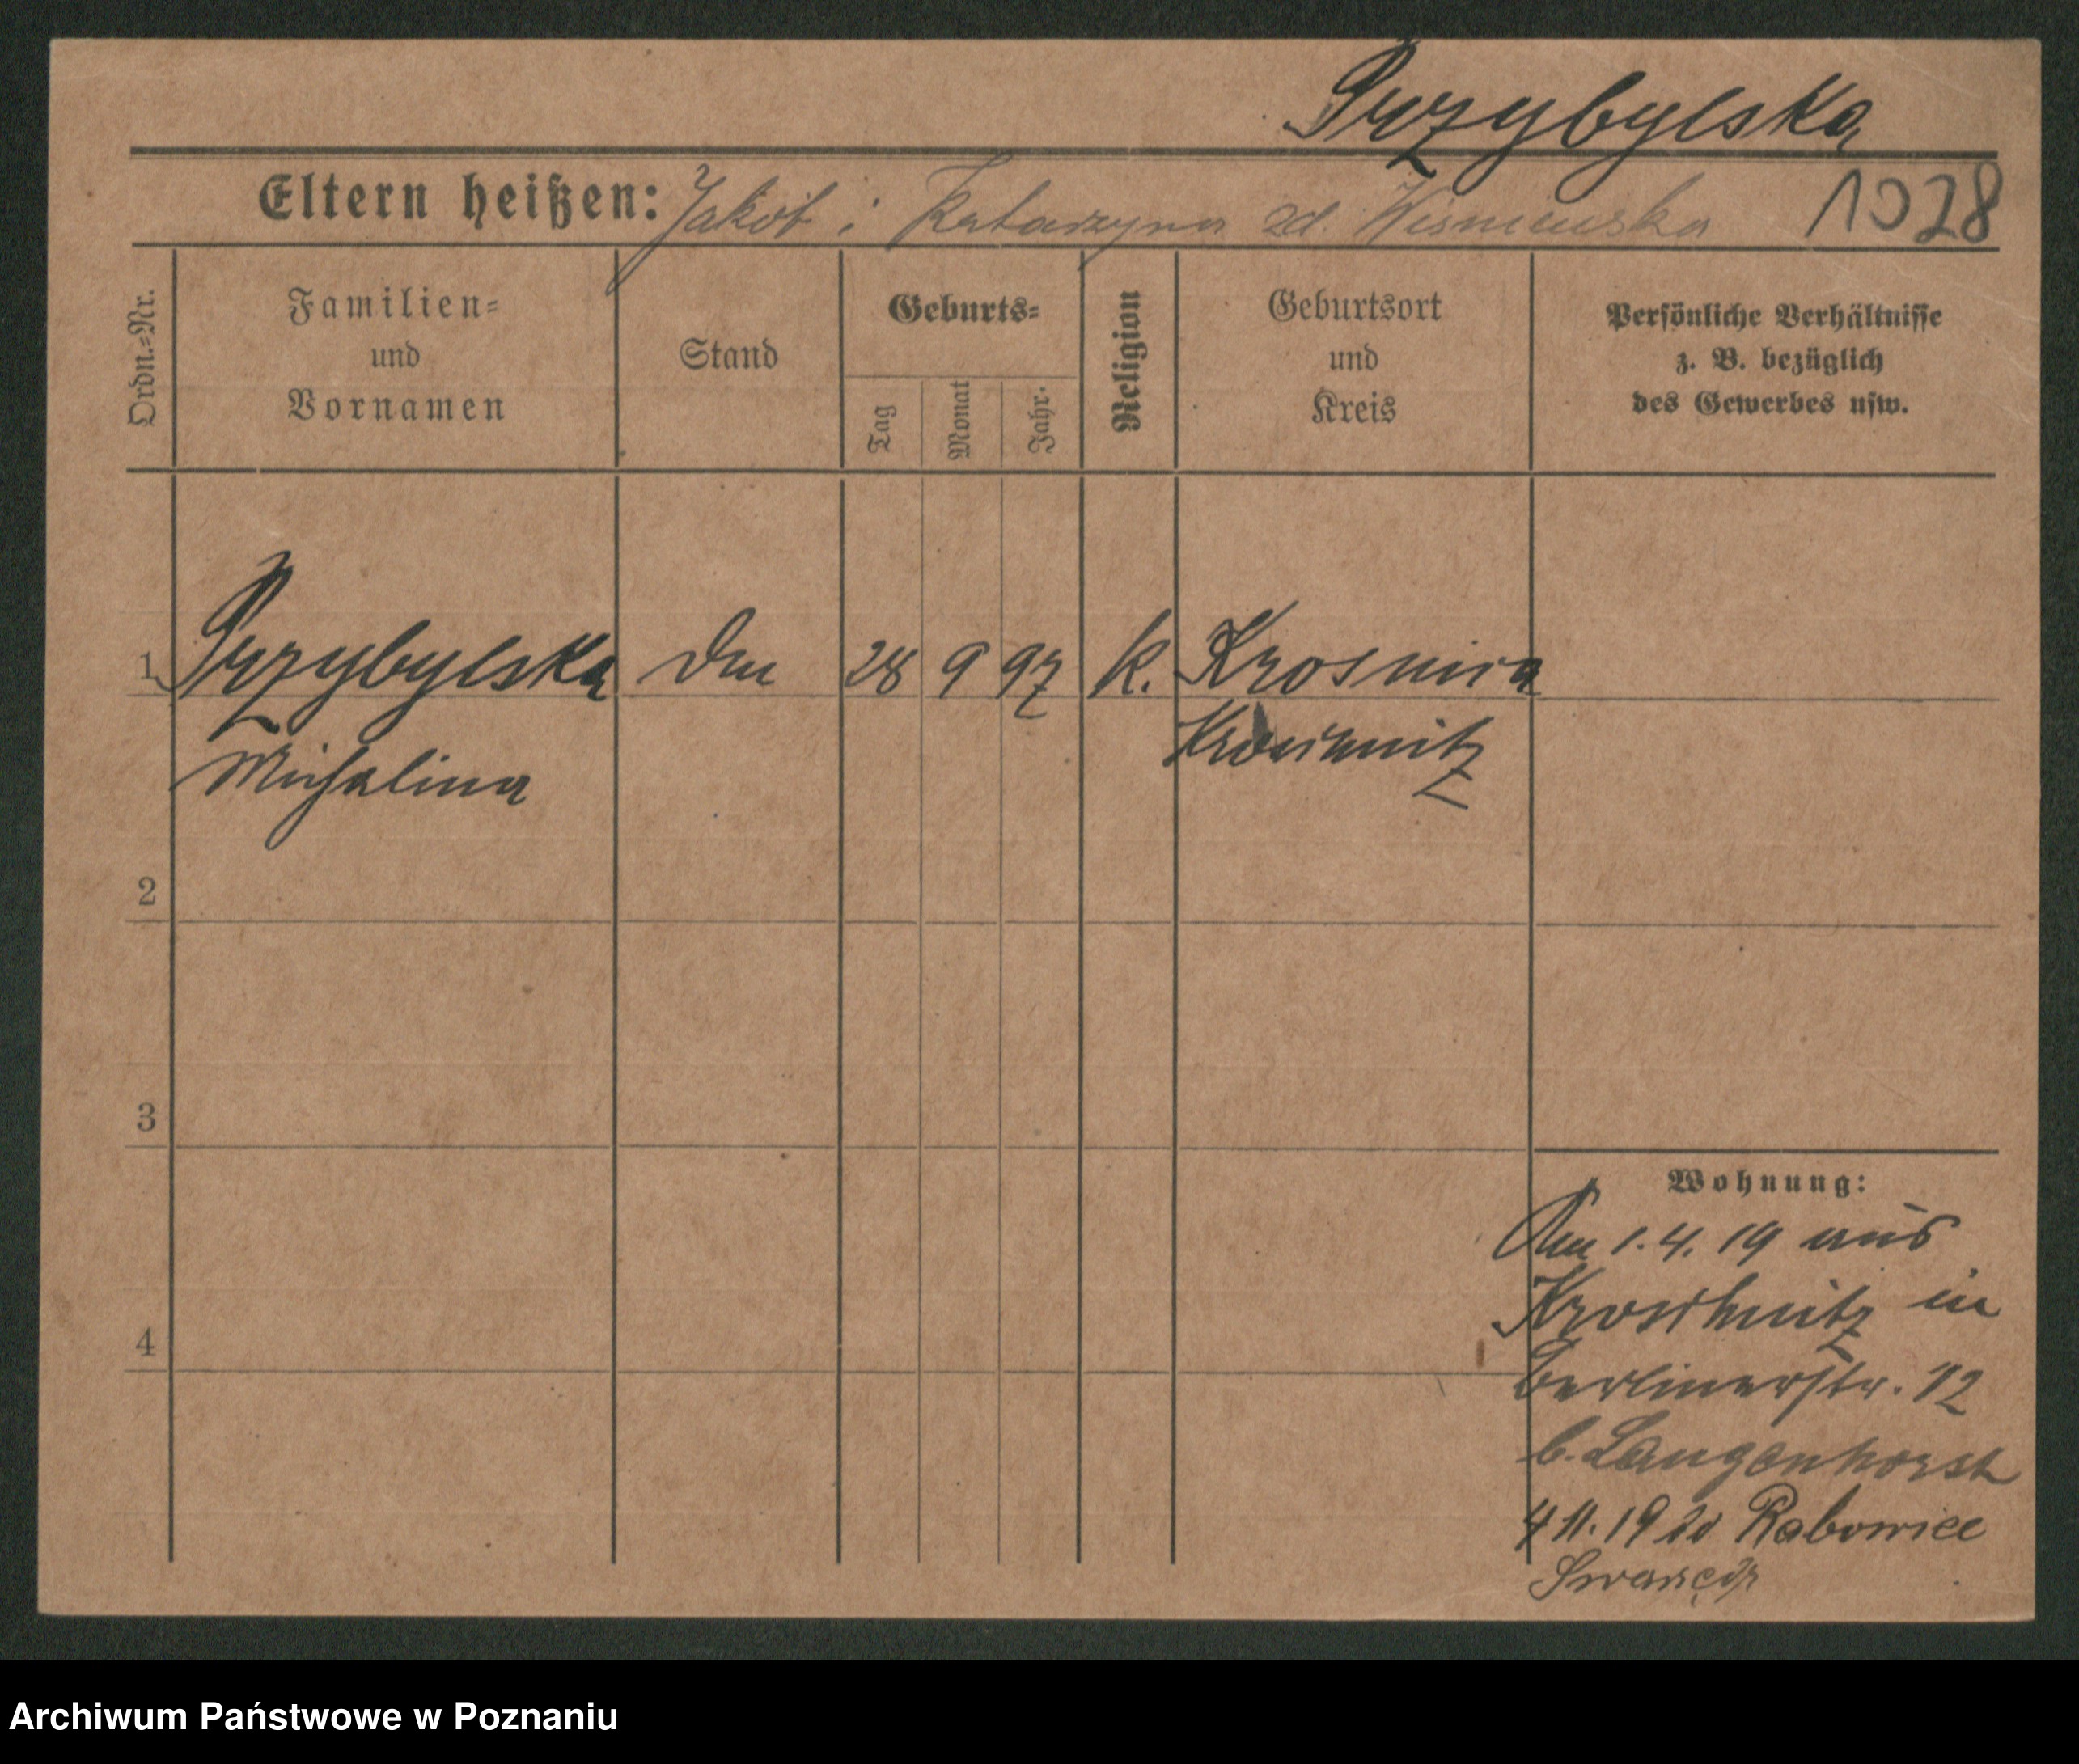 Przybylska
Eltern heißen: Jakób i Katarzyna zd. Wisniewska 1028
Ordn.-Nr.
Familien-
und
Vornamen
Stand
Geburts-
Tag
Monat
Jahr.
Religion
Geburtsort
und
Kreis
Persönliche Verhältnisse
z. B. bezüglich
des Gewerbes usw.
1 Przybylska 28 9 97 k.
Michalina
2
3
4
Wohnung:
Am 1.4.19 aus
Kroschnitz in
Berlinerstr. 12
b. Langenhorst
4 11. 1920 Rabowice
Swarzędz
Archiwum Państwowe w Poznaniu